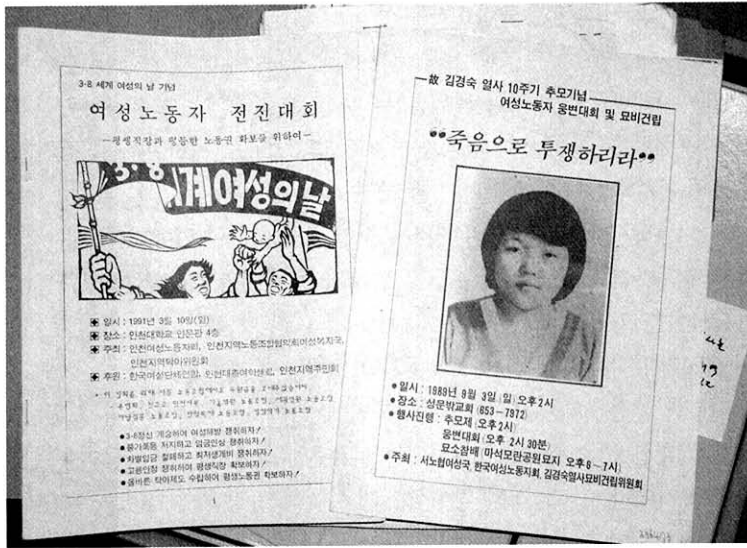 3·8 세계 여성의 날 기념
여성노동자 전진대회
—평생직장과 평등한 노동권 확보를 위하여—
3·8
세계여성의날
일시 : 1991년 3월 10일(일)
장소 : 인천대학교 인문관 4층
주최 : 인천여성노동자회, 인천지역노동조합협의회여성복지국,
인천지역탁아위원회
후원 : 한국여성단체연합,
●3·8정신 계승하여 여성해방 쟁취하자!
●물가폭등 저지하고 임금인상 쟁취하자!
●차별임금 철폐하고 최저생계비 쟁취하자!
●고용안정 쟁취하여 평생직장 확보하자!
●올바른 탁아제도 수립하여 평생노동권 확보하자!
故 김경숙 열사 10주기 추모기념
여성노동자 웅변대회 및 묘비건립
••죽음으로 투쟁하리라••
●일시 : 1989년 9월 3일(일) 오후 2시
●장소 : 성문밖교회 (653-7972)
●행사진행 : 추모제 (오후 2시)
웅변대회 (오후 2시 30분)
묘소참배 (마석모란공원묘지 오후 6~7시)
●주최 : 서노협여성국, 한국여성노동자회, 김경숙열사묘비건립위원회